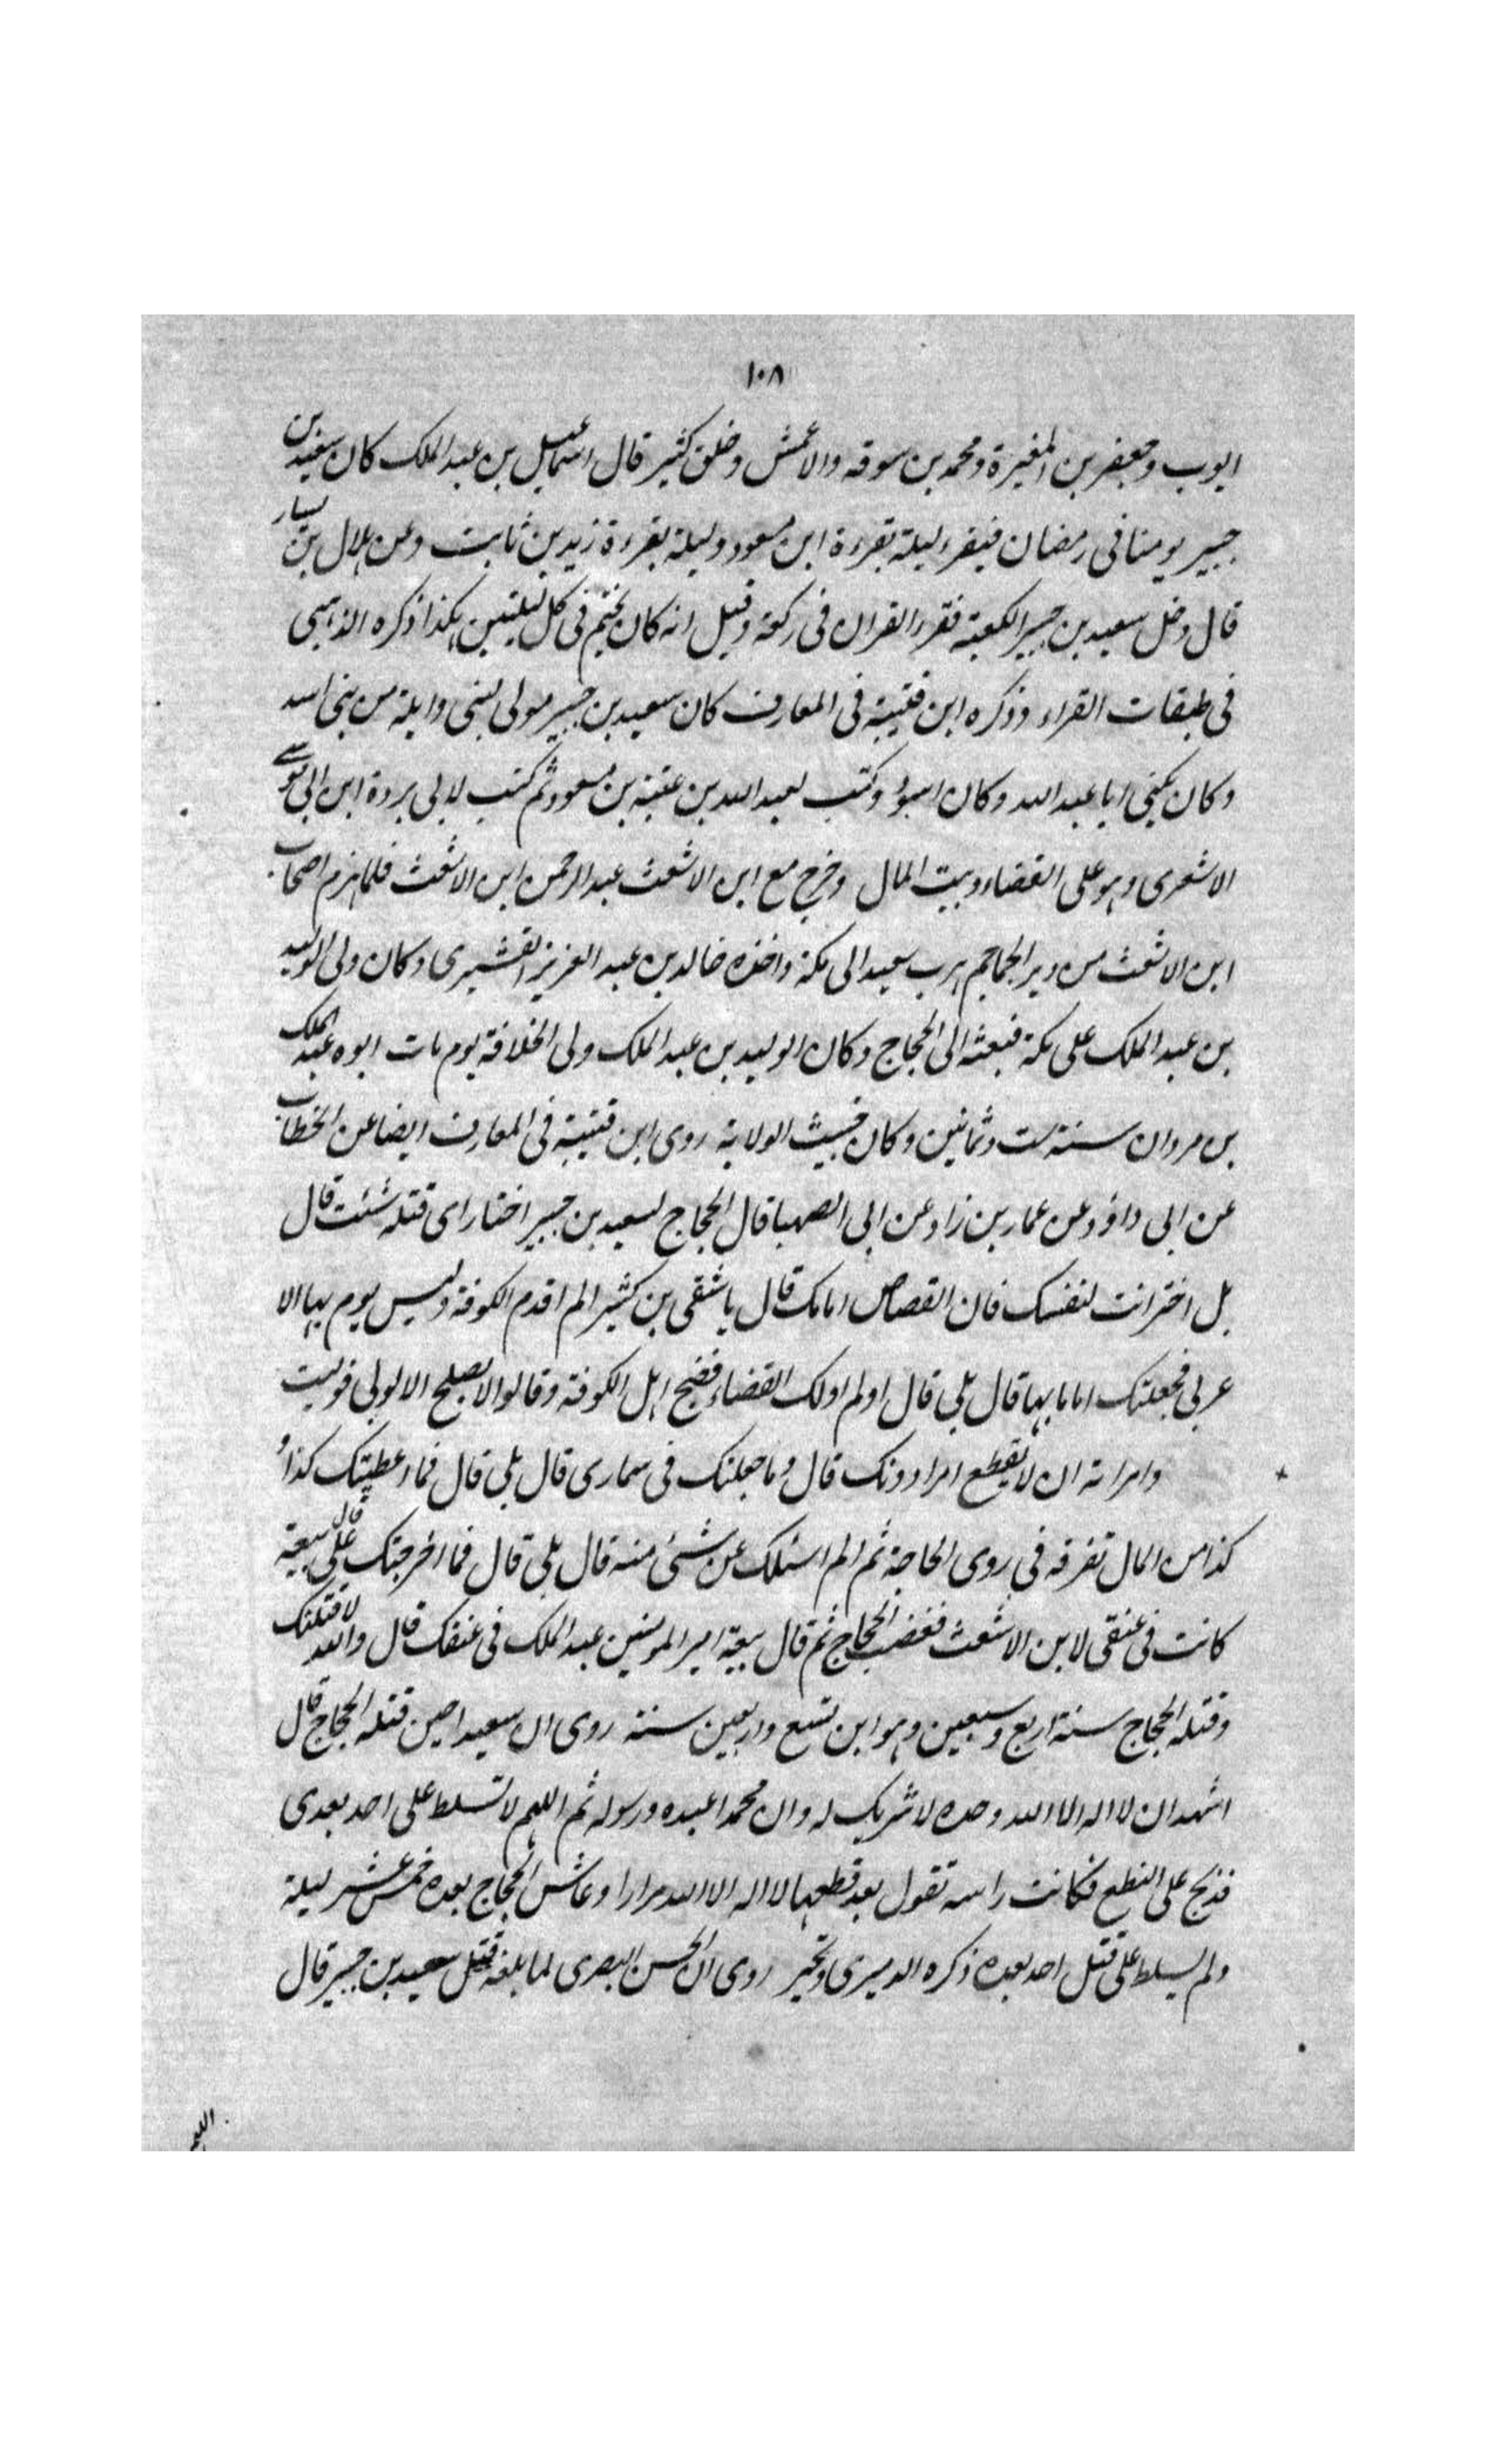 ١٠٨
ايوب وجعفر بن المغيرة ومحمد بن سوقه والاعمش وخلق كثير قال اسماعيل بن عبد الملك كان سعيد بن
جبير يومنا فى رمضان فيقرء ليلة بقرءة ابن مسعود وليلة بقرءة زيد بن ثابت وعن هلال بن يسار
قال دخل سعيد بن جبير الكعبة فقرء القران فى ركعة وقيل انه كان يختم فى كل ليلتين هكذا ذكره الذهبى
فى طبقات القراء وذكره ابن قتيبة فى المعارف كان سعيد بن جبير مولى لبنى وابلة من بنى اسد
وكان يكنى ابا عبد الله وكان اسود وكتب لعبد الله بن عتبة بن مسعود ثم كتب لابى بردة ابن ابى موسے
الاشعرى وهو على القضاء وبيت المال وخرج مع ابن الاشعث عبد الرحمن ابن الاشعث فلما هزم اصحاب
ابن الاشعث من دير الجماجم هرب سعيد الى مكة واخذه خالد بن عبد العزيز القشيرى وكان ولى الوليد
بن عبد الملك على مكة فبعثه الى الحجاج وكان الوليد بن عبد الملك ولى الخلافة يوم مات ابوه عبد الملك
بن مروان سنة ست وثمانين وكان خبيث الولاية روى ابن قتيبة فى المعارف ايضا عن الخطاب
عن ابى داؤد عن عمار بن زاد عن ابى الصهبا قال الحجاج لسعيد بن جبير اختار اى قتله شئت قال
بل اختر انت لنفسك فان القصاص امامك قال يا شقى بن كثير الم اقدم الكوفة وليس يوم بها الا
عربى فجعلتك اماما بها قال بلى قال اولم اولك القضاء فضج اهل الكوفة وقالوا لا يصلح الا لولى فوليت
وامرا ته ان لا يقطع امرا دونك قال وما جعلتك فى سمارى قال بلى قال فما اعطيتك كذا و
كذا من المال تفرقه فى روى الحاجة ثم الم اسئلك عن شئى منه قال بلى قال فما اخرجتك على قال بيعة
كانت فى عنقى لابن الاشعث فغضب الحجاج ثم قال بيعة امير المومنين عبد الملك فى عنقك قال والله لاقتلنك
وقتله الحجاج سنة اربع وسبعين وهو ابن تسع واربعين سنة روى ان سعيدا حين قتله الحجاج قال
اشهد ان لا اله الا الله وحده لا شريك له وان محمدا عبده ورسوله ثم اللهم لا تسلط على احد بعدى
فذبح على النطع فكانت راسه تقول بعد قطعها لا اله الا الله مرارا وعاش الحجاج بعده خمس عشر ليلة
ولم يسلط على قتل احد بعده ذكره الدميرى وتحير روى ان الحسن البصرى لما بلغه قتل سعيد بن جبير قال
اللهم